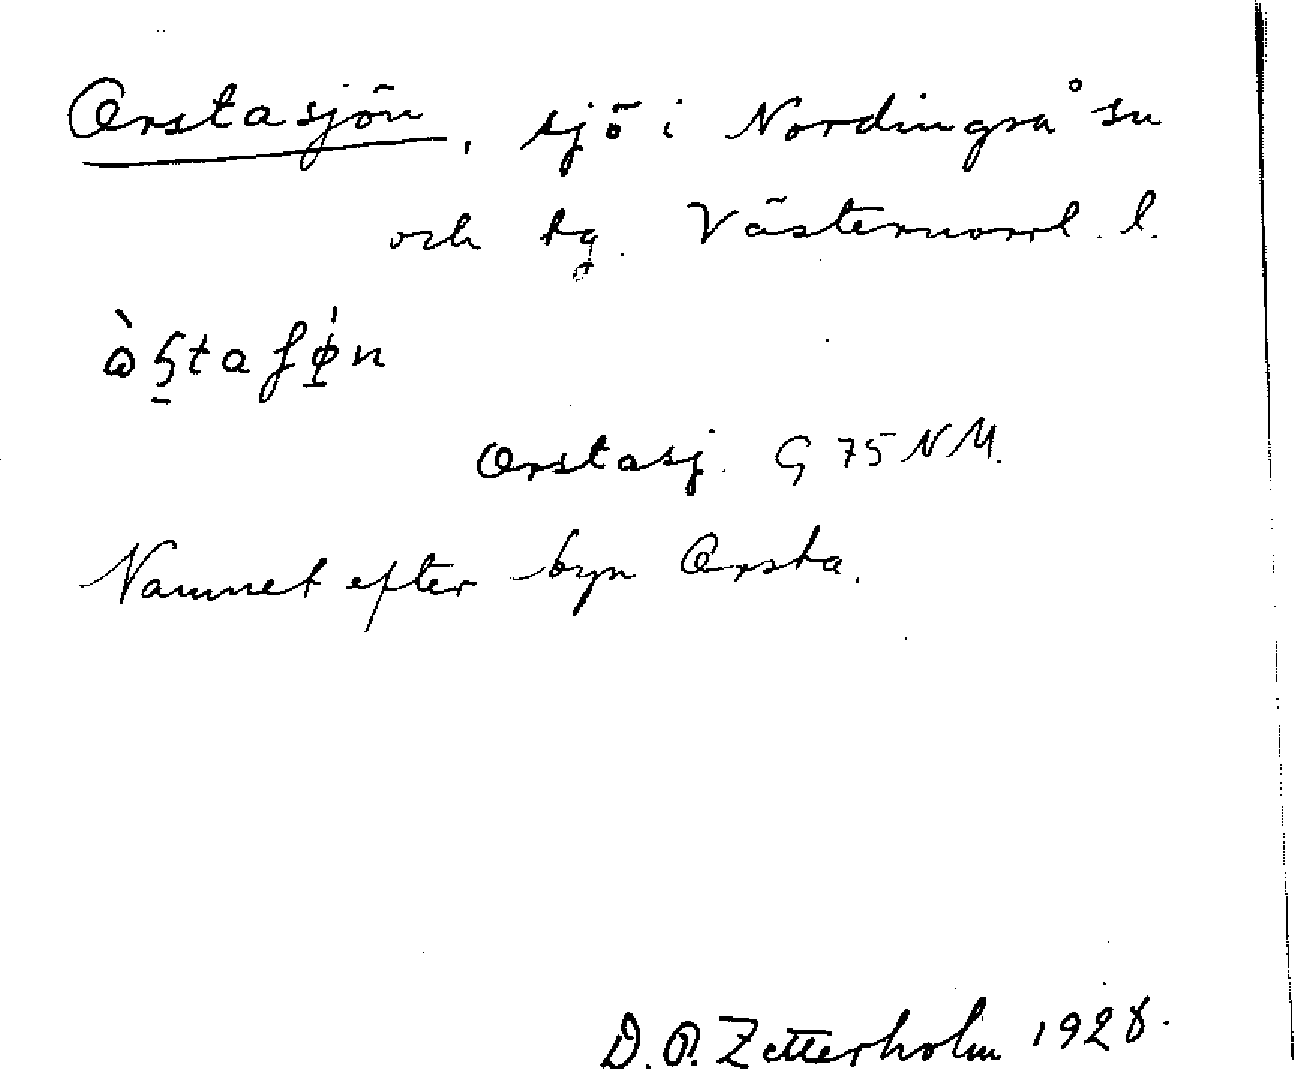 Orstasjön, sjö i Nordingrå sn
och tg. Västernorrl. l.
Orstasj. G 75 NM.
Namnet efter byn Orsta.
D. O. Zetterholm 1928.